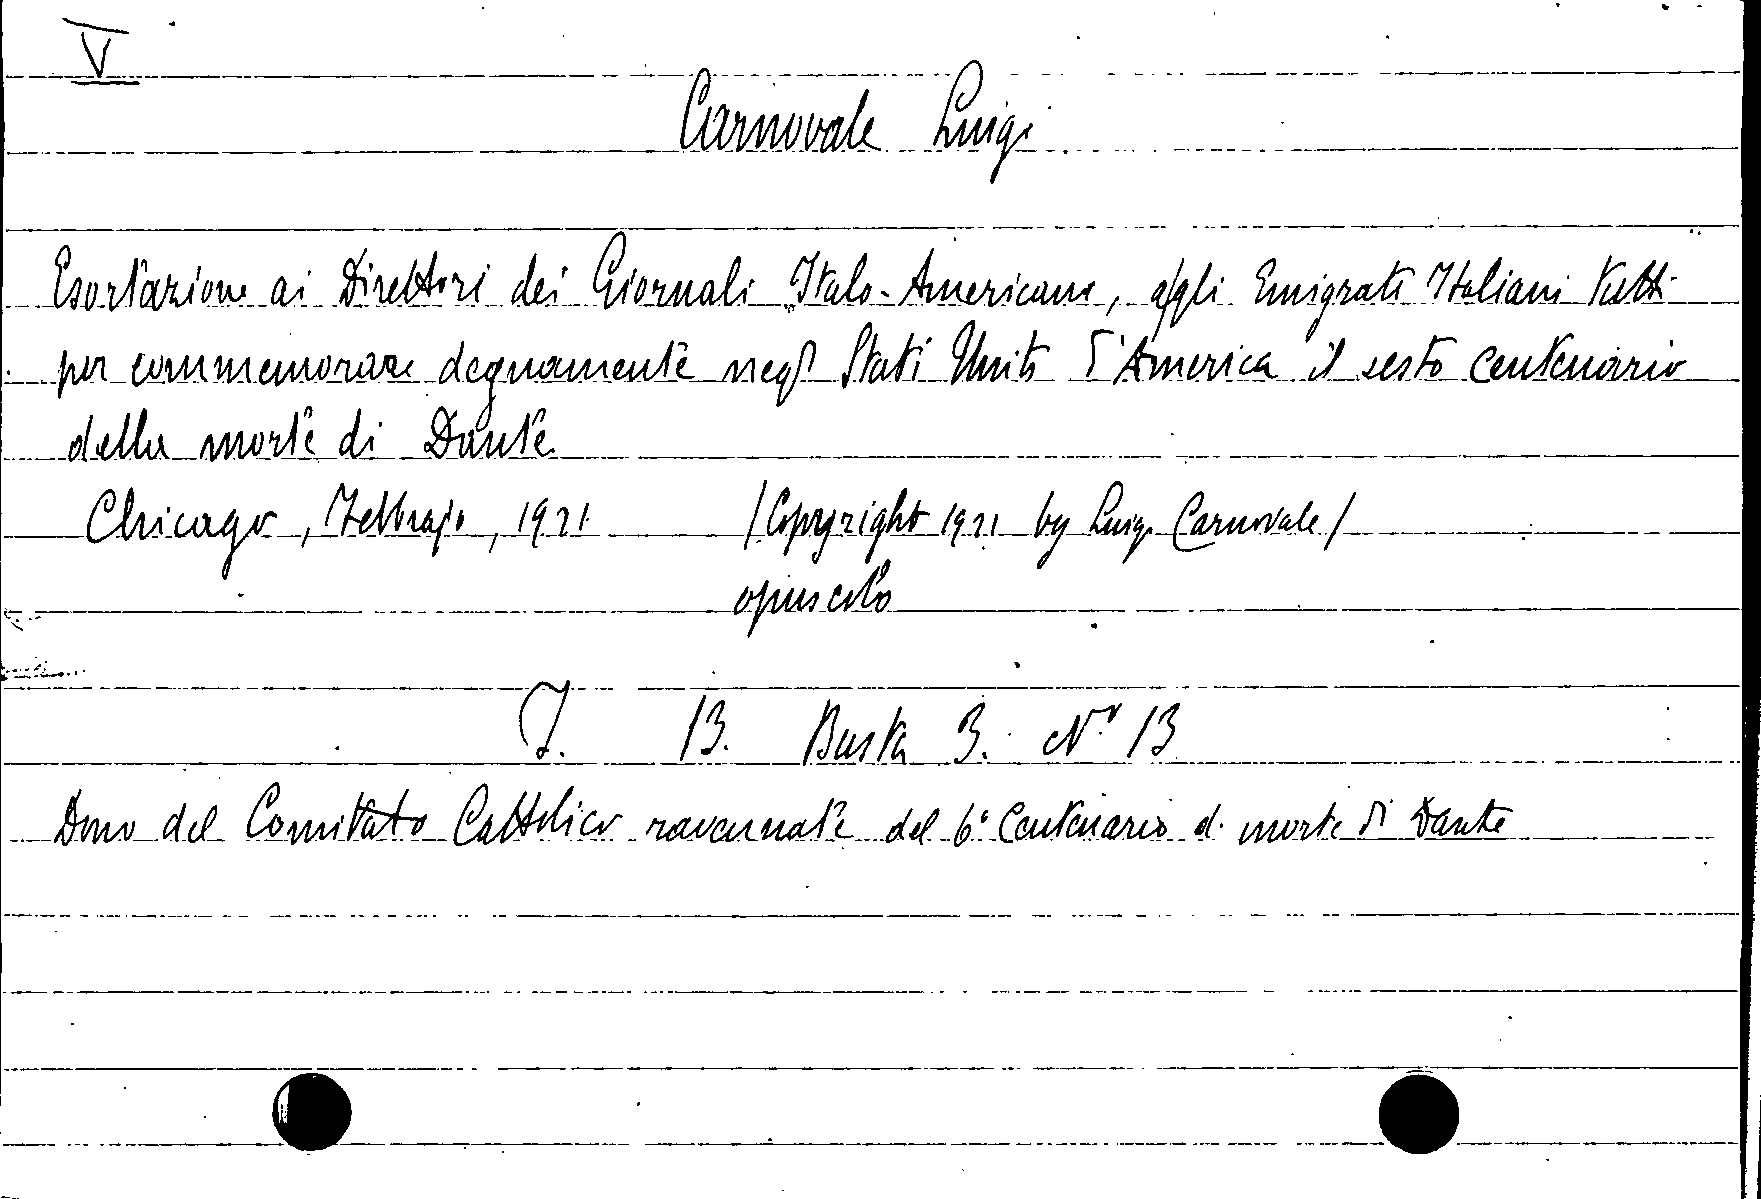 V
Carnovale Luigi
Esortazione ai Direttori dei Giornali Italo-Americani, agli Emigrati Italiani tutti
per commemorare degnamente negli Stati Uniti d'America il sesto centenario
della morte di Dante
Chicago, Febbrajo, 1921 /Copyright 1921 by Luigi Carnovale/
opuscolo
I. 13. Busta 3. Nº 13
Dono del Comitato Cattolico ravennate del 6º Centenario d. morte di Dante